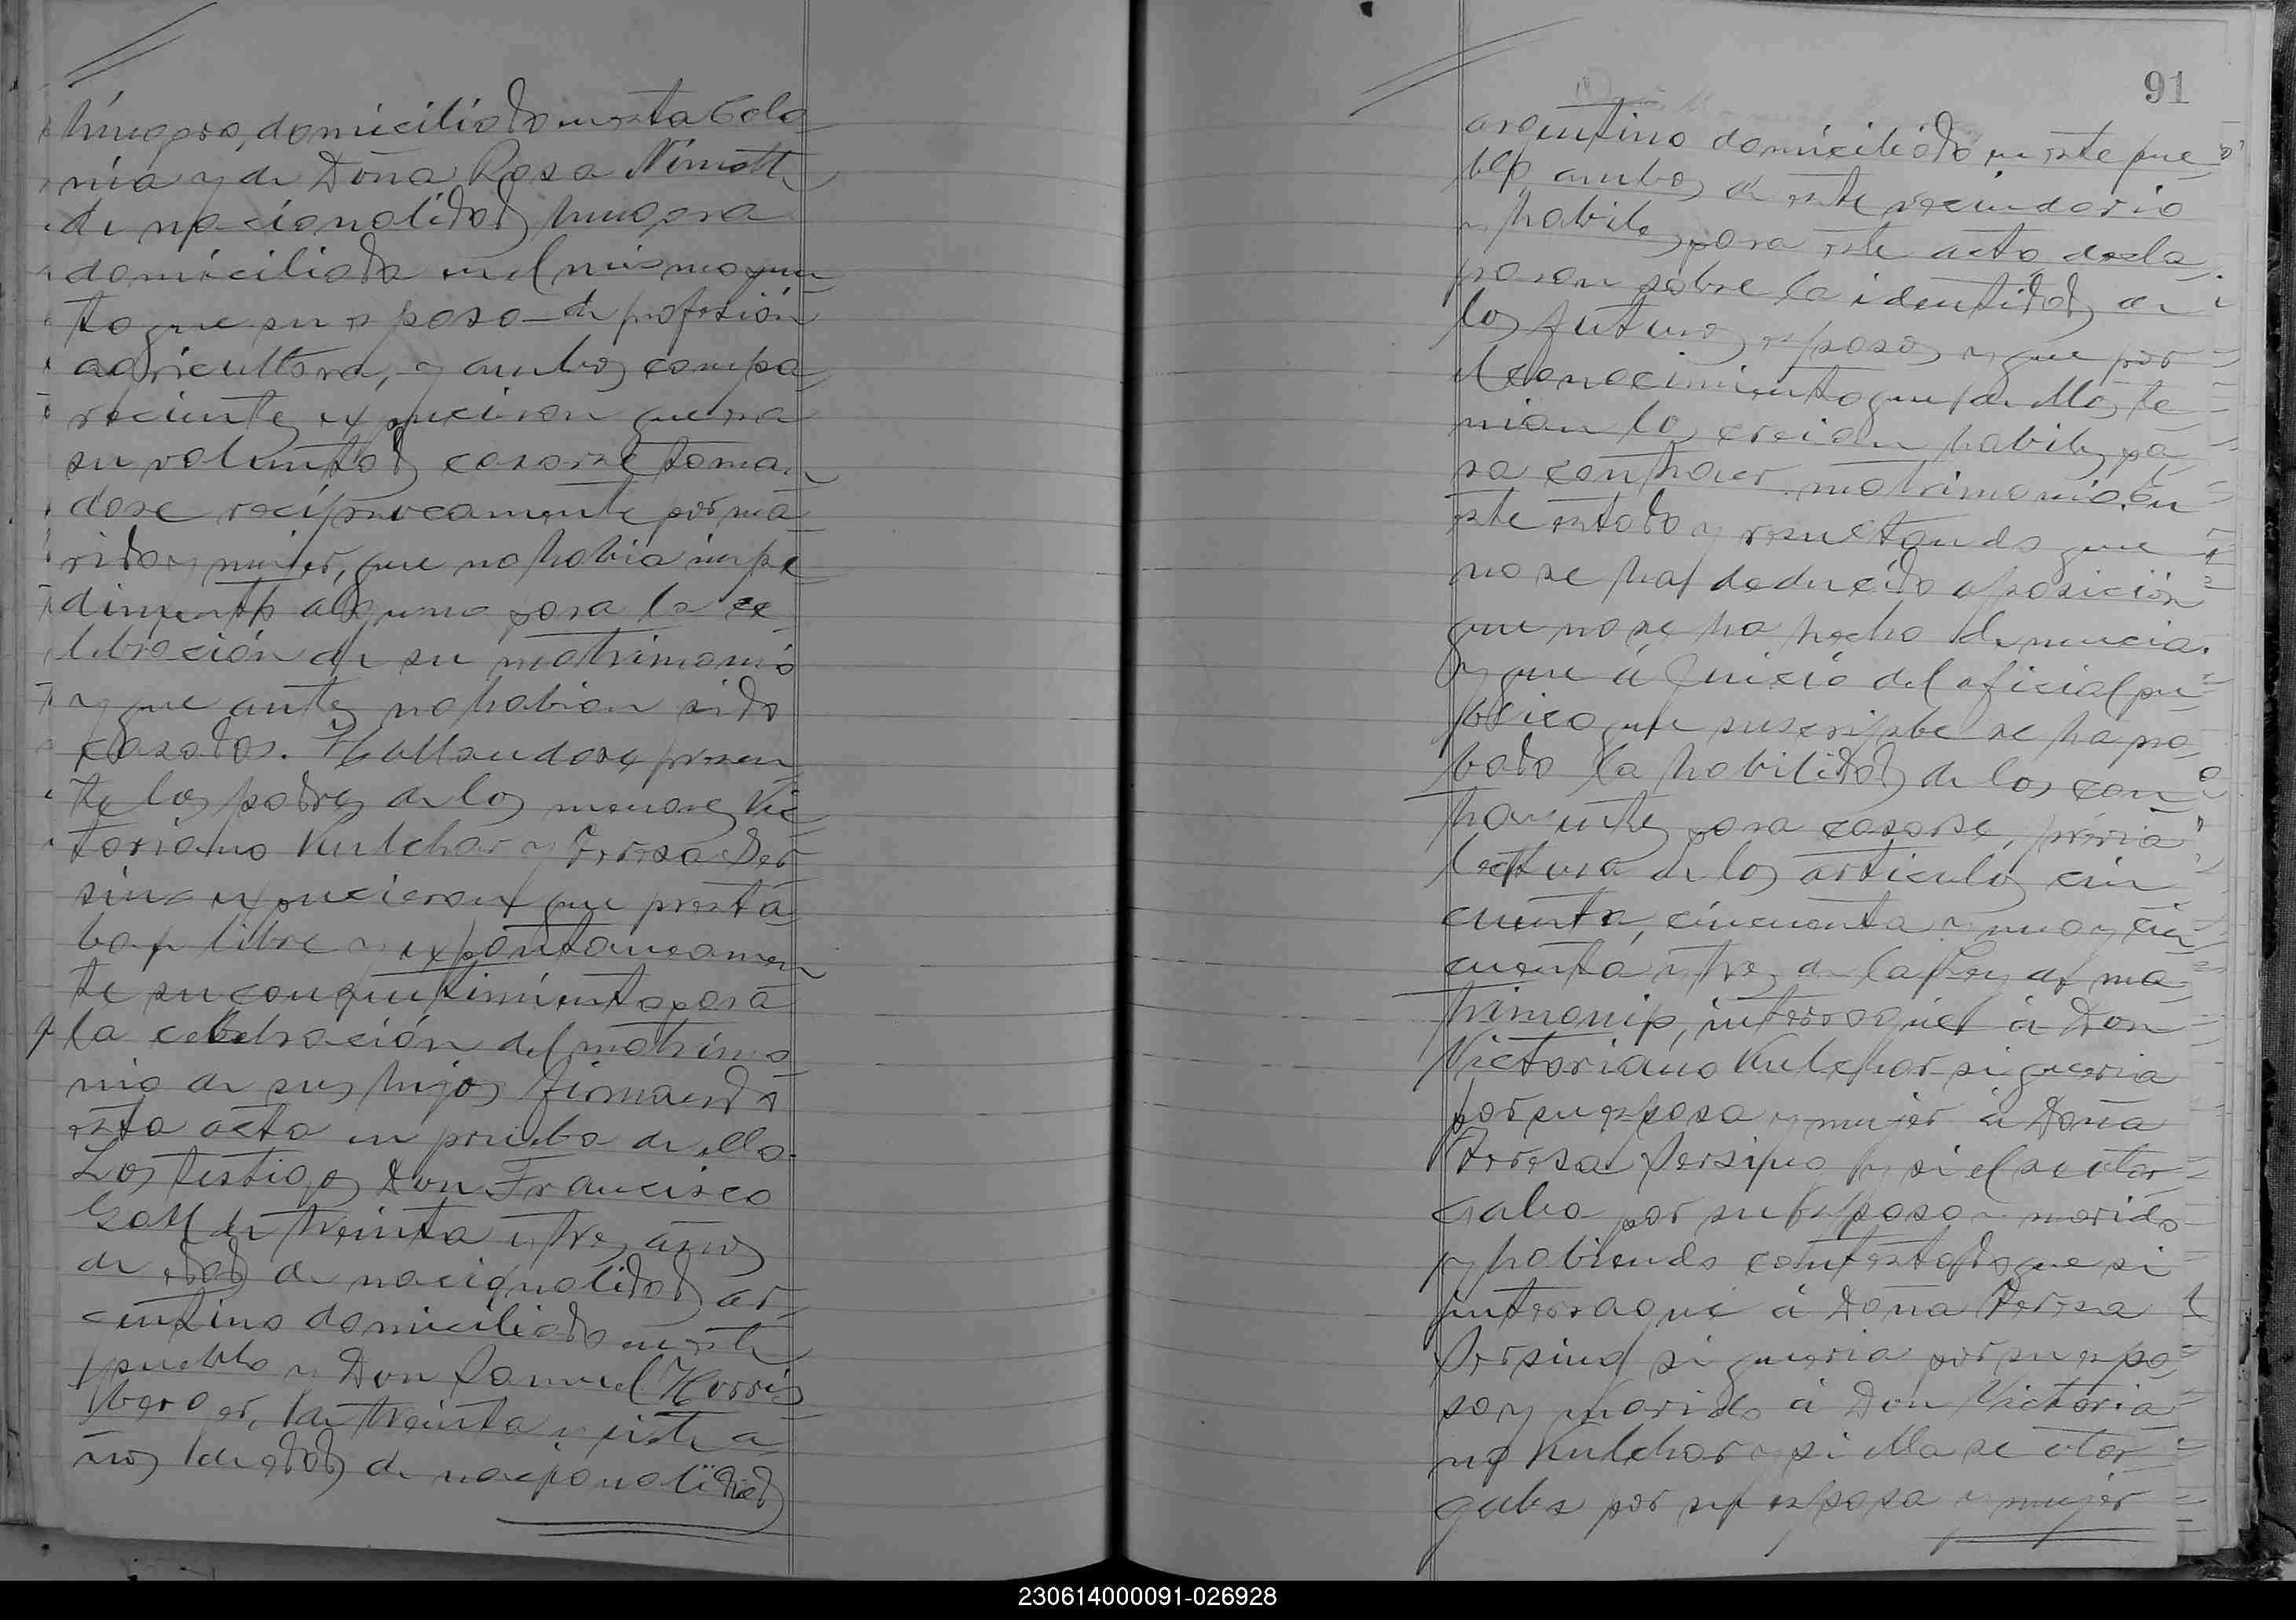 húngaro, domiciliado en esta Colo
nia y de Doña Rosa Nimeth
de nacionalidad hungara
domiciliada en el mismo pun
to que su esposo de profesión
agricultora, y ambos compa
recientes expucieron que era
su voluntad casarse toman
dose recíprocamente por ma
rido y mujer, que no habia impe
dimento alguno para la ce
lebración de su matrimonio
y que antes no habian sido
casados. Hallandose presen
te los padres de los menores Vic
toriano Kulchar y Teresa Per
sina expucieron que presta
ban libre y expontaneamen
te su consentimiento para
la celebración del matrimo
nio de sus hijos firmando
esta acta en prueba de ello.
Los testigos Don Francisco
Gall de treinta y tres años
de edad de nacionalidad ar
gentino domiciliado en este
pueblo y Don Samuel
berger, de treinta y siete a
ños de edad de nacionalidad
91
argentino domiciliado en este pue
blo ambos de este vecindario
y habiles para este acto decla
raron sobre la identidad de
los futuros esposos y que por
el conocimiento que de ellos te
nian los creian habiles pa
ra contraer matrimonio. En
este estado y resultando que
no se ha deducido oposición
que no se ha hecho denuncia.
y que á Juicio del oficial pu
blico que suscripbe se ha pro
bado la habilidad de los con
trayentes para casarse, prévia
lectura de los articulos cin
cuenta, cincuenta y uno y cin
cuenta y tres de la Ley de ma
trimonio, interrogué á Don
Victoriano Kulchar si queria
por su esposa y mujer á Doña
Teresa Persina y si el se otor
gaba por su esposo y marido
y habiendo contestado que si
interrogué á Doña Teresa
Persina si queria por su espo
so y marido á Don Victoria
no Kulchar y si ella se otor
gaba por su esposa y mujer
230614000091-026928